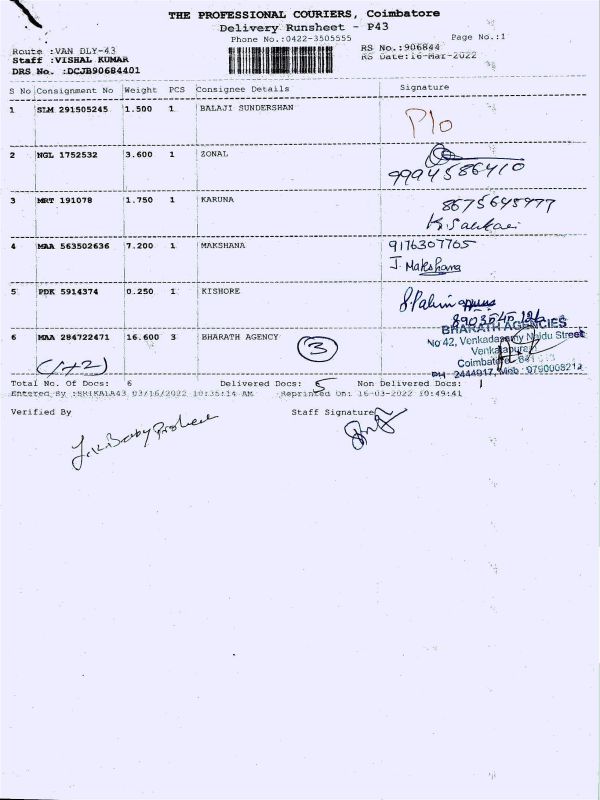 THE PROFESSIONAL COURIERS, Coimbatore
Delivery Runsheet - P43
Phone No.:0422-3505555
Page No.:1
Route :VAN DLY-43
RS No.:906844
Staff :VISHAL KUMAR
RS Date:16-Mar-2022
DRS No. :DCJB90684401
S No Consignment No Weight PCS Consignee Details Signature
1 SLM 291505245 1.500 1 BALAJI SUNDERSHAN P/o
2 NGL 1752532 3.600 1 ZONAL
9994586410
3 MRT 191078 1.750 1 KARUNA 8675645977
4 MAA 563502636 7.200 1 MAKSHANA 9176307765
J. Makshana
5 PDK 5914374 0.250 1 KISHORE
6 MAA 284722471 16.600 3 BHARATH AGENCY 3
(1+2)
BHARATH AGENCIES
No 42, Venkadasamy Naidu Street
Venkatapuram
Coimbatore
PH 2444917, Mob : 9790008212
Total No. Of Docs: 6 Delivered Docs: 5 Non Delivered Docs: 1
Entered By :SRIKALA43 03/16/2022 10:35:14 AM Reprinted On: 16-03-2022 10:49:41
Verified By Staff Signature